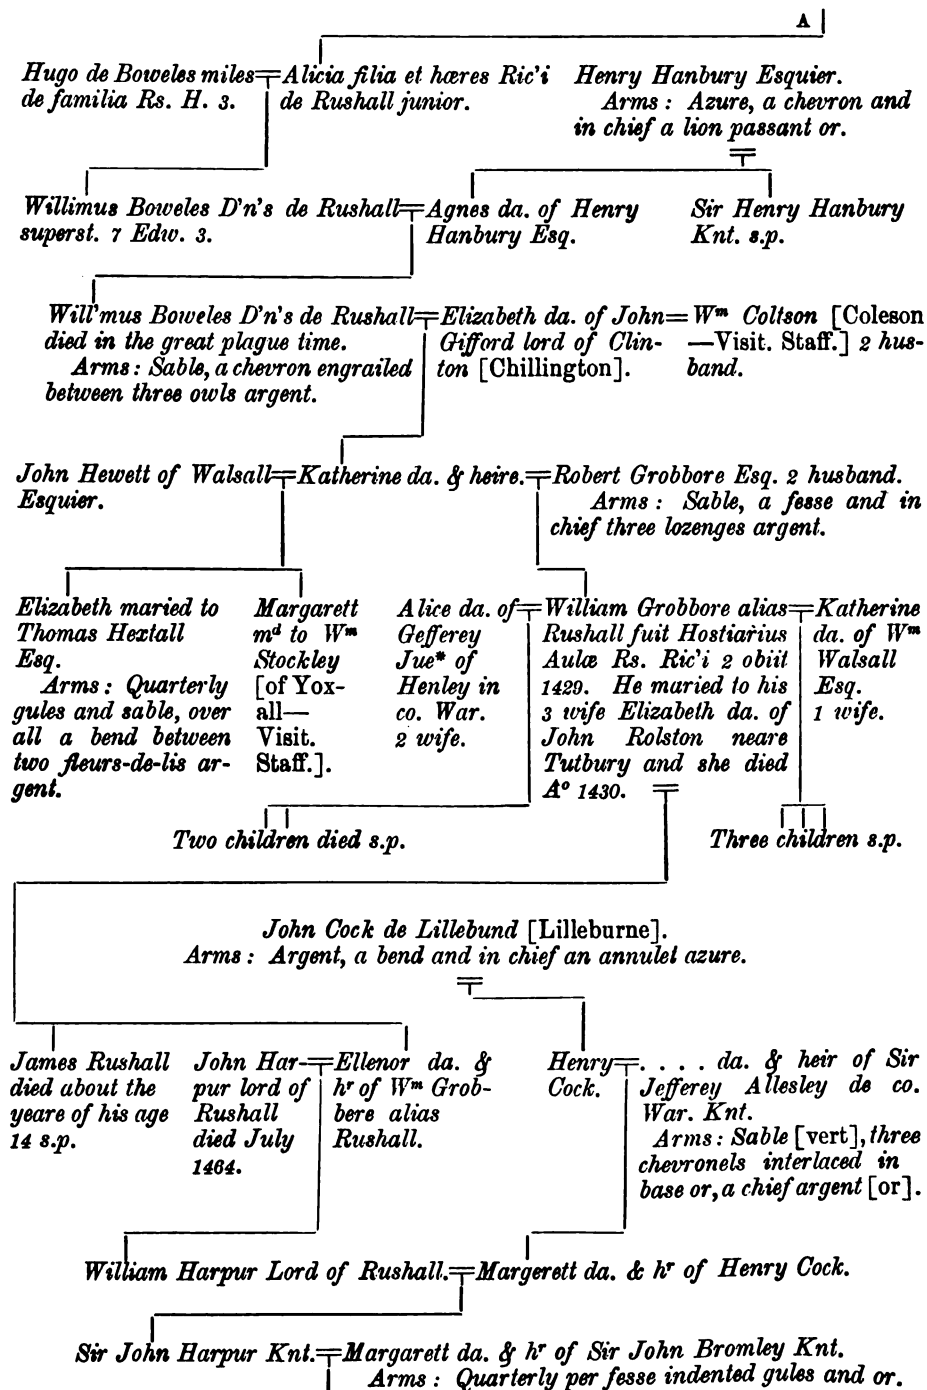 A
Hugo de Boweles miles
de familia Rs. H. 3.
Alicia filia et hæres Ric'i
de Rushall junior.
Henry Hanbury Esquier.
Arms : Azure, a chevron and
in chief a lion passant or.
Willimus Boweles D'n's de Rushall
superst. 7 Edw. 3.
Agnes da. of Henry
Hanbury Esq.
Sir Henry Hanbury
Knt. s.p.
Will'mus Boweles D'n's de Rushall
died in the great plague time.
Arms : Sable, a chevron engrailed
between three owls argent.
Elizabeth da. of John
Gifford lord of Clin-
ton [Chillington].
Wᵐ Coltson [Coleson
—Visit. Staff.] 2 hus-
band.
John Hewett of Walsall
Esquier.
Katherine da. & heire.
Robert Grobbore Esq. 2 husband.
Arms : Sable, a fesse and in
chief three lozenges argent.
Elizabeth maried to
Thomas Hextall
Esq.
Arms : Quarterly
gules and sable, over
all a bend between
two fleurs-de-lis ar-
gent.
Margarett
mᵈ to Wᵐ
Stockley
[of Yox-
all—
Visit.
Staff.].
Alice da. of
Gefferey
Jue* of
Henley in
co. War.
2 wife.
William Grobbore alias
Rushall fuit Hostiarius
Aulæ Rs. Ric'i 2 obiit
1429. He maried to his
3 wife Elizabeth da. of
John Rolston neare
Tutbury and she died
Aᵒ 1430.
Katherine
da. of Wᵐ
Walsall
Esq.
1 wife.
Two children died s.p.
Three children s.p.
John Cock de Lillebund [Lilleburne].
Arms : Argent, a bend and in chief an annulet azure.
James Rushall
died about the
yeare of his age
14 s.p.
John Har-
pur lord of
Rushall
died July
1464.
Ellenor da. &
hʳ of Wᵐ Grob-
bere alias
Rushall.
Henry
Cock.
. . . . da. & heir of Sir
Jefferey Allesley de co.
War. Knt.
Arms : Sable [vert], three
chevronels interlaced in
base or, a chief argent [or].
William Harpur Lord of Rushall.
Margerett da. & hʳ of Henry Cock.
Sir John Harpur Knt.
Margarett da. & hʳ of Sir John Bromley Knt.
Arms : Quarterly per fesse indented gules and or.